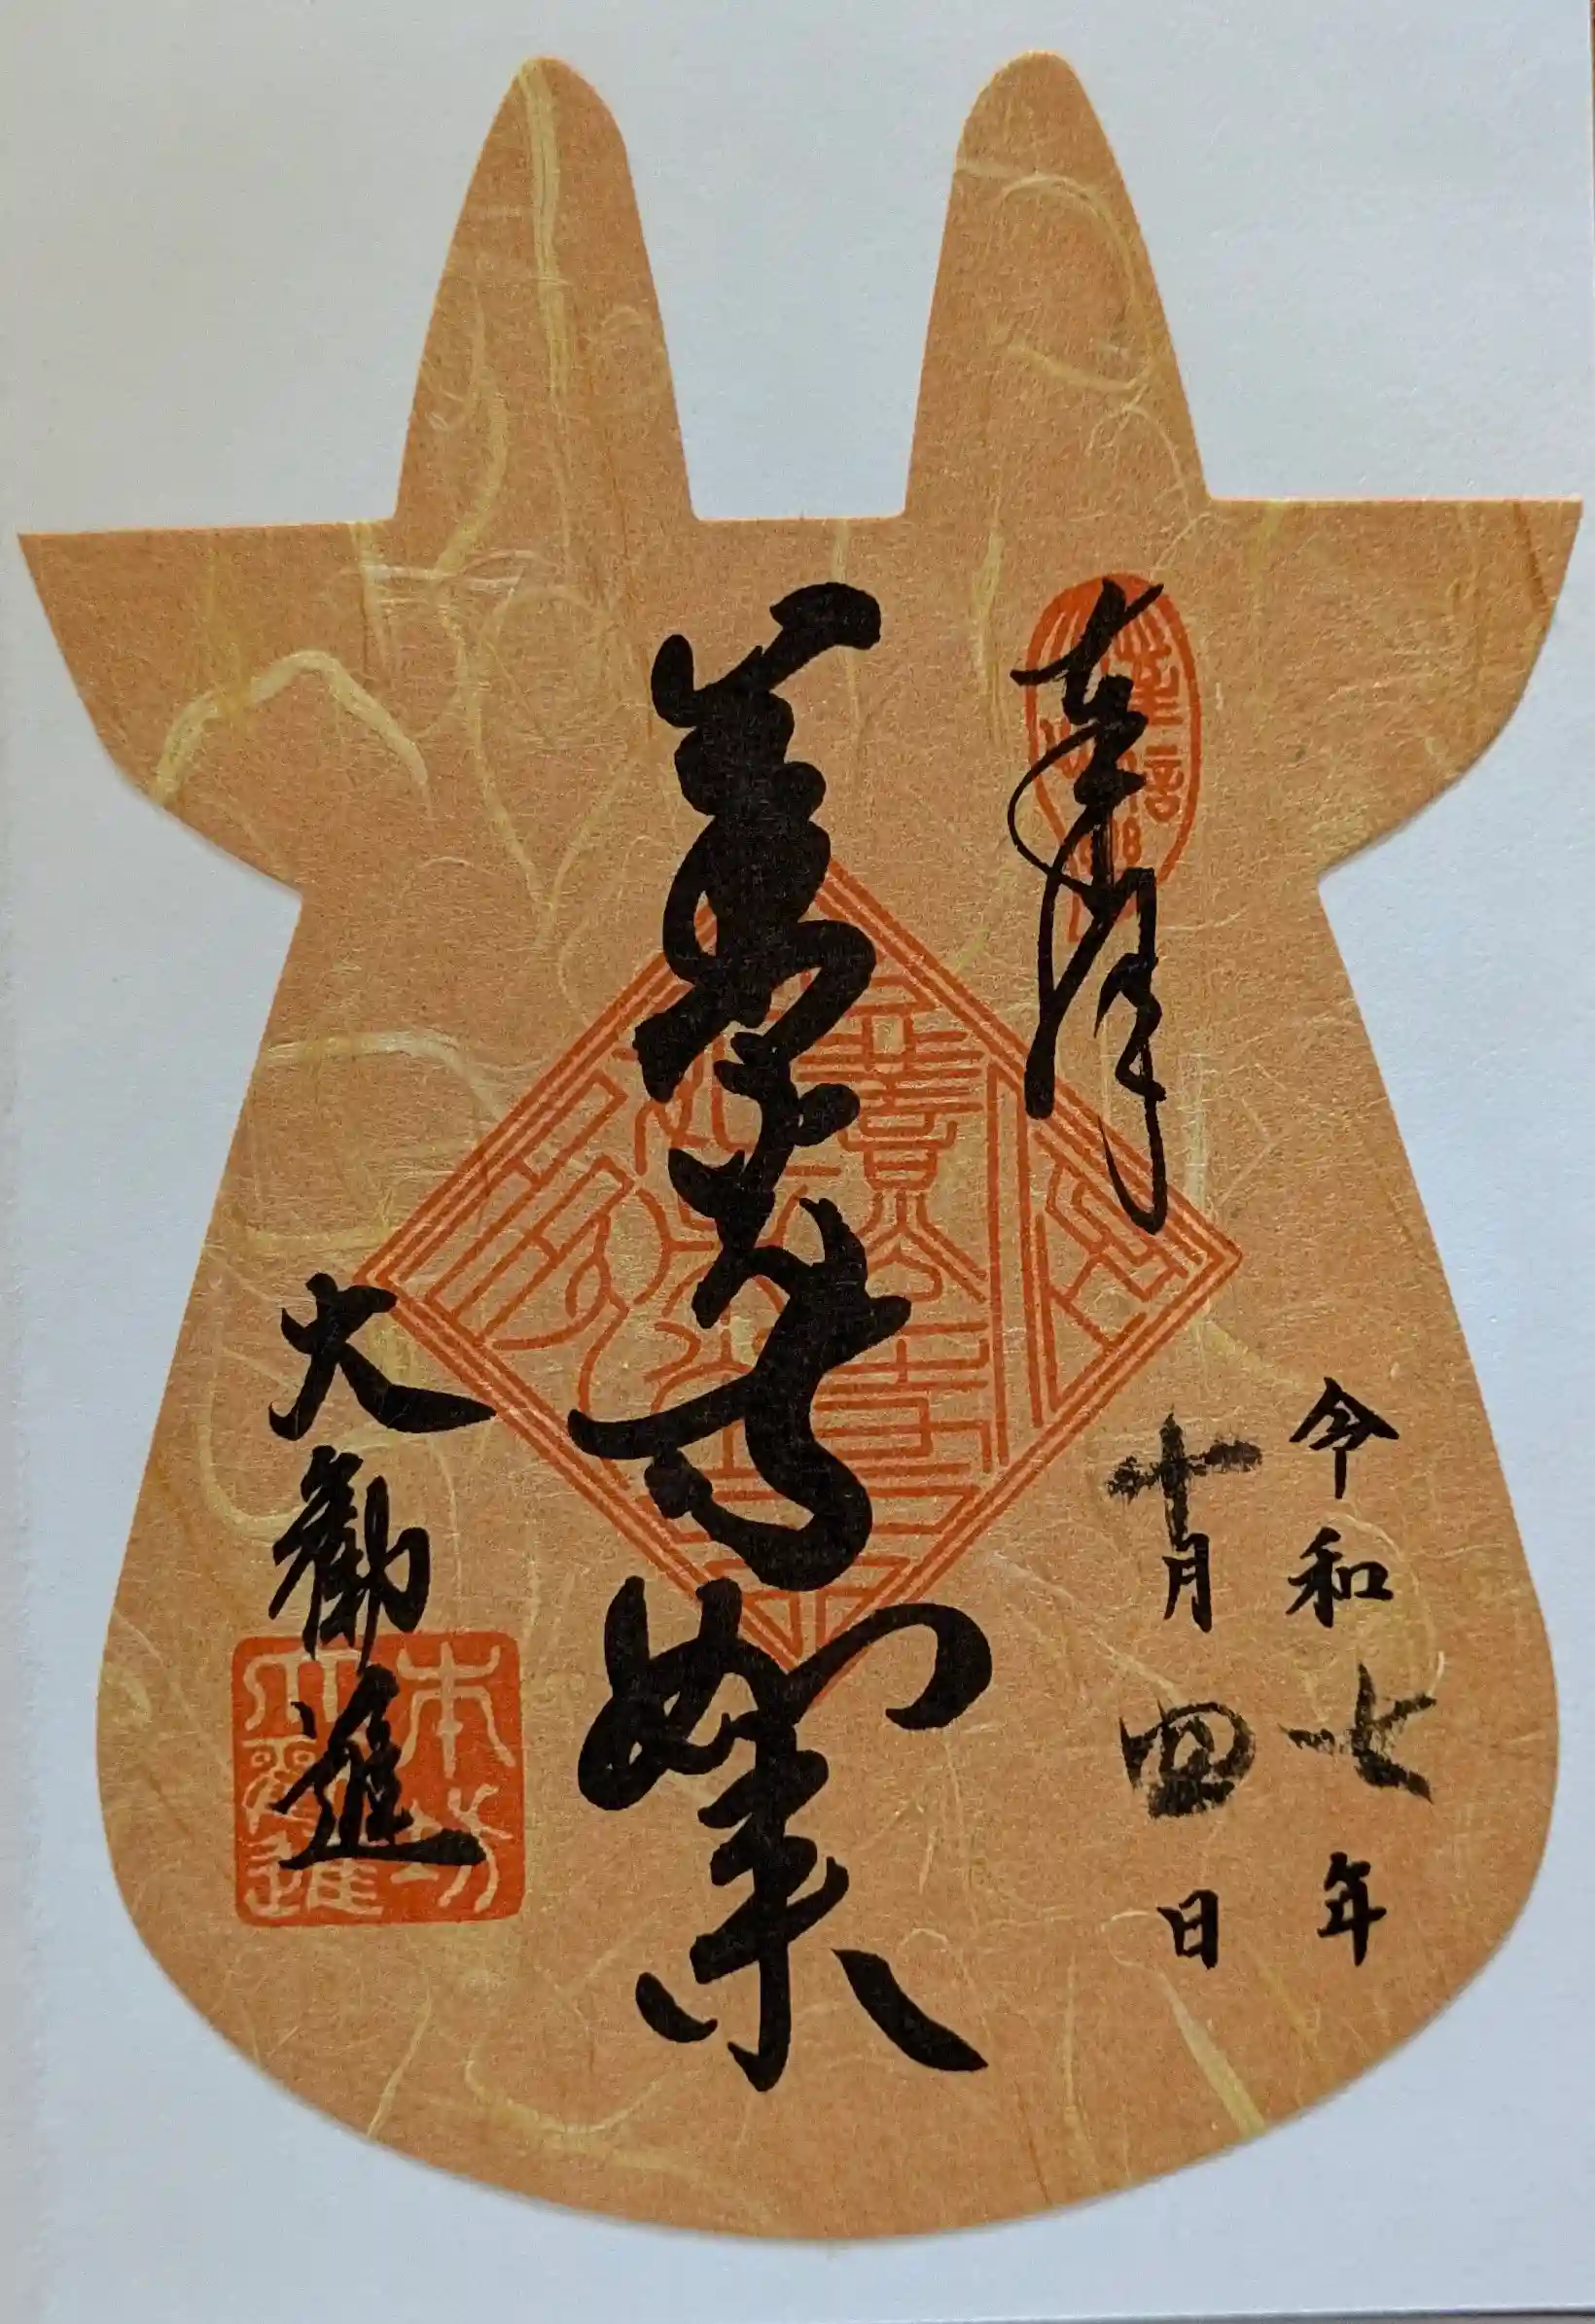 奉拝
令和七年
十月四日
善光寺如来
大勸進
本坊
大勸進